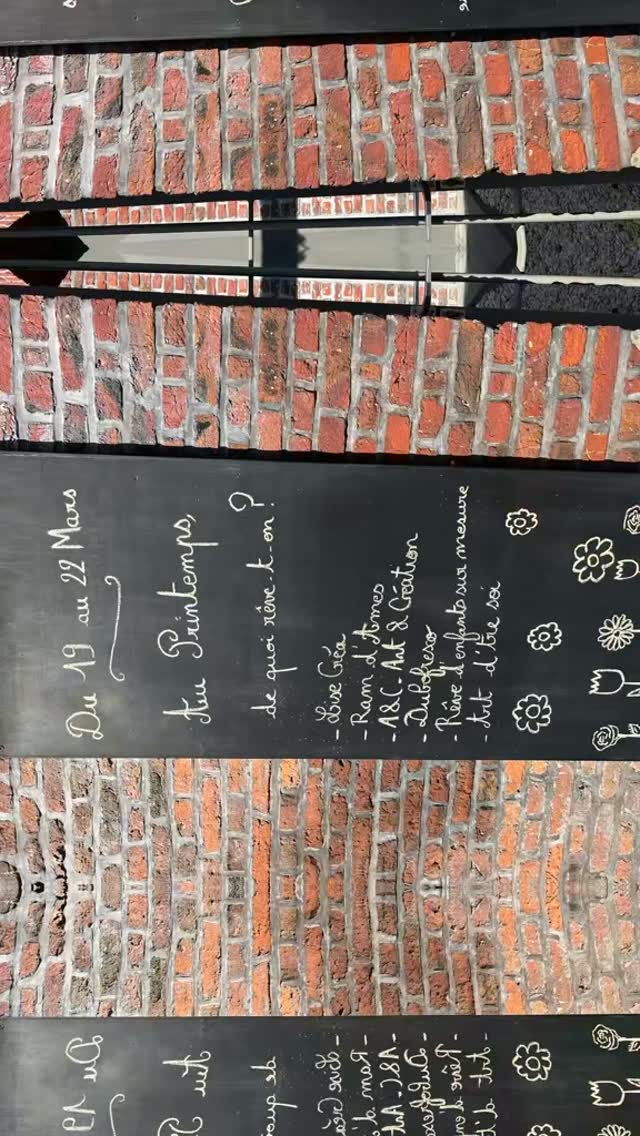 Du 19 au 22 Mars
Au Printemps,
de quoi rêve-t-on ?
- Lise Créa
- Ram d'Ames
- A&C. Art & Création
- Dubofreso
- Rêve d'enfants sur mesure
- Art d'être soi